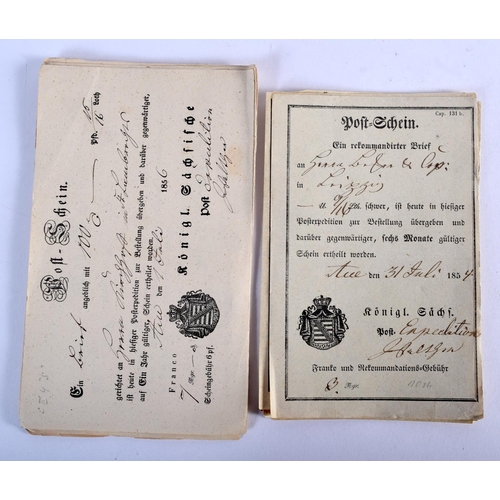 Post-Schein.
Ein Brief
angeblich mit 100 Pf. 15/16 Loth
gerichtet an Herrn
ist heute in hiesiger Posterpedition zur Bestellung übergeben und darüber gegenwärtiger,
auf Ein Jahr gültiger, Schein ertheilt worden.
Aue den 1 Juli 1856
Königl. Sächsische
Post Expedition
Franco
7 Ngr.
Scheingebühr 5 pf.
Cap. 131 b.
Post-Schein.
Ein rekommandirter Brief
an Herrn & Comp:
in Leipzig
schwer, ist heute in hiesiger
Posterpedition zur Bestellung übergeben und
darüber gegenwärtiger, sechs Monate gültiger
Schein ertheilt worden.
Aue den 31 Juli 1854
Königl. Sächs.
Post-Expedition
Franko und Rekommandations-Gebühr
3. Ngr.